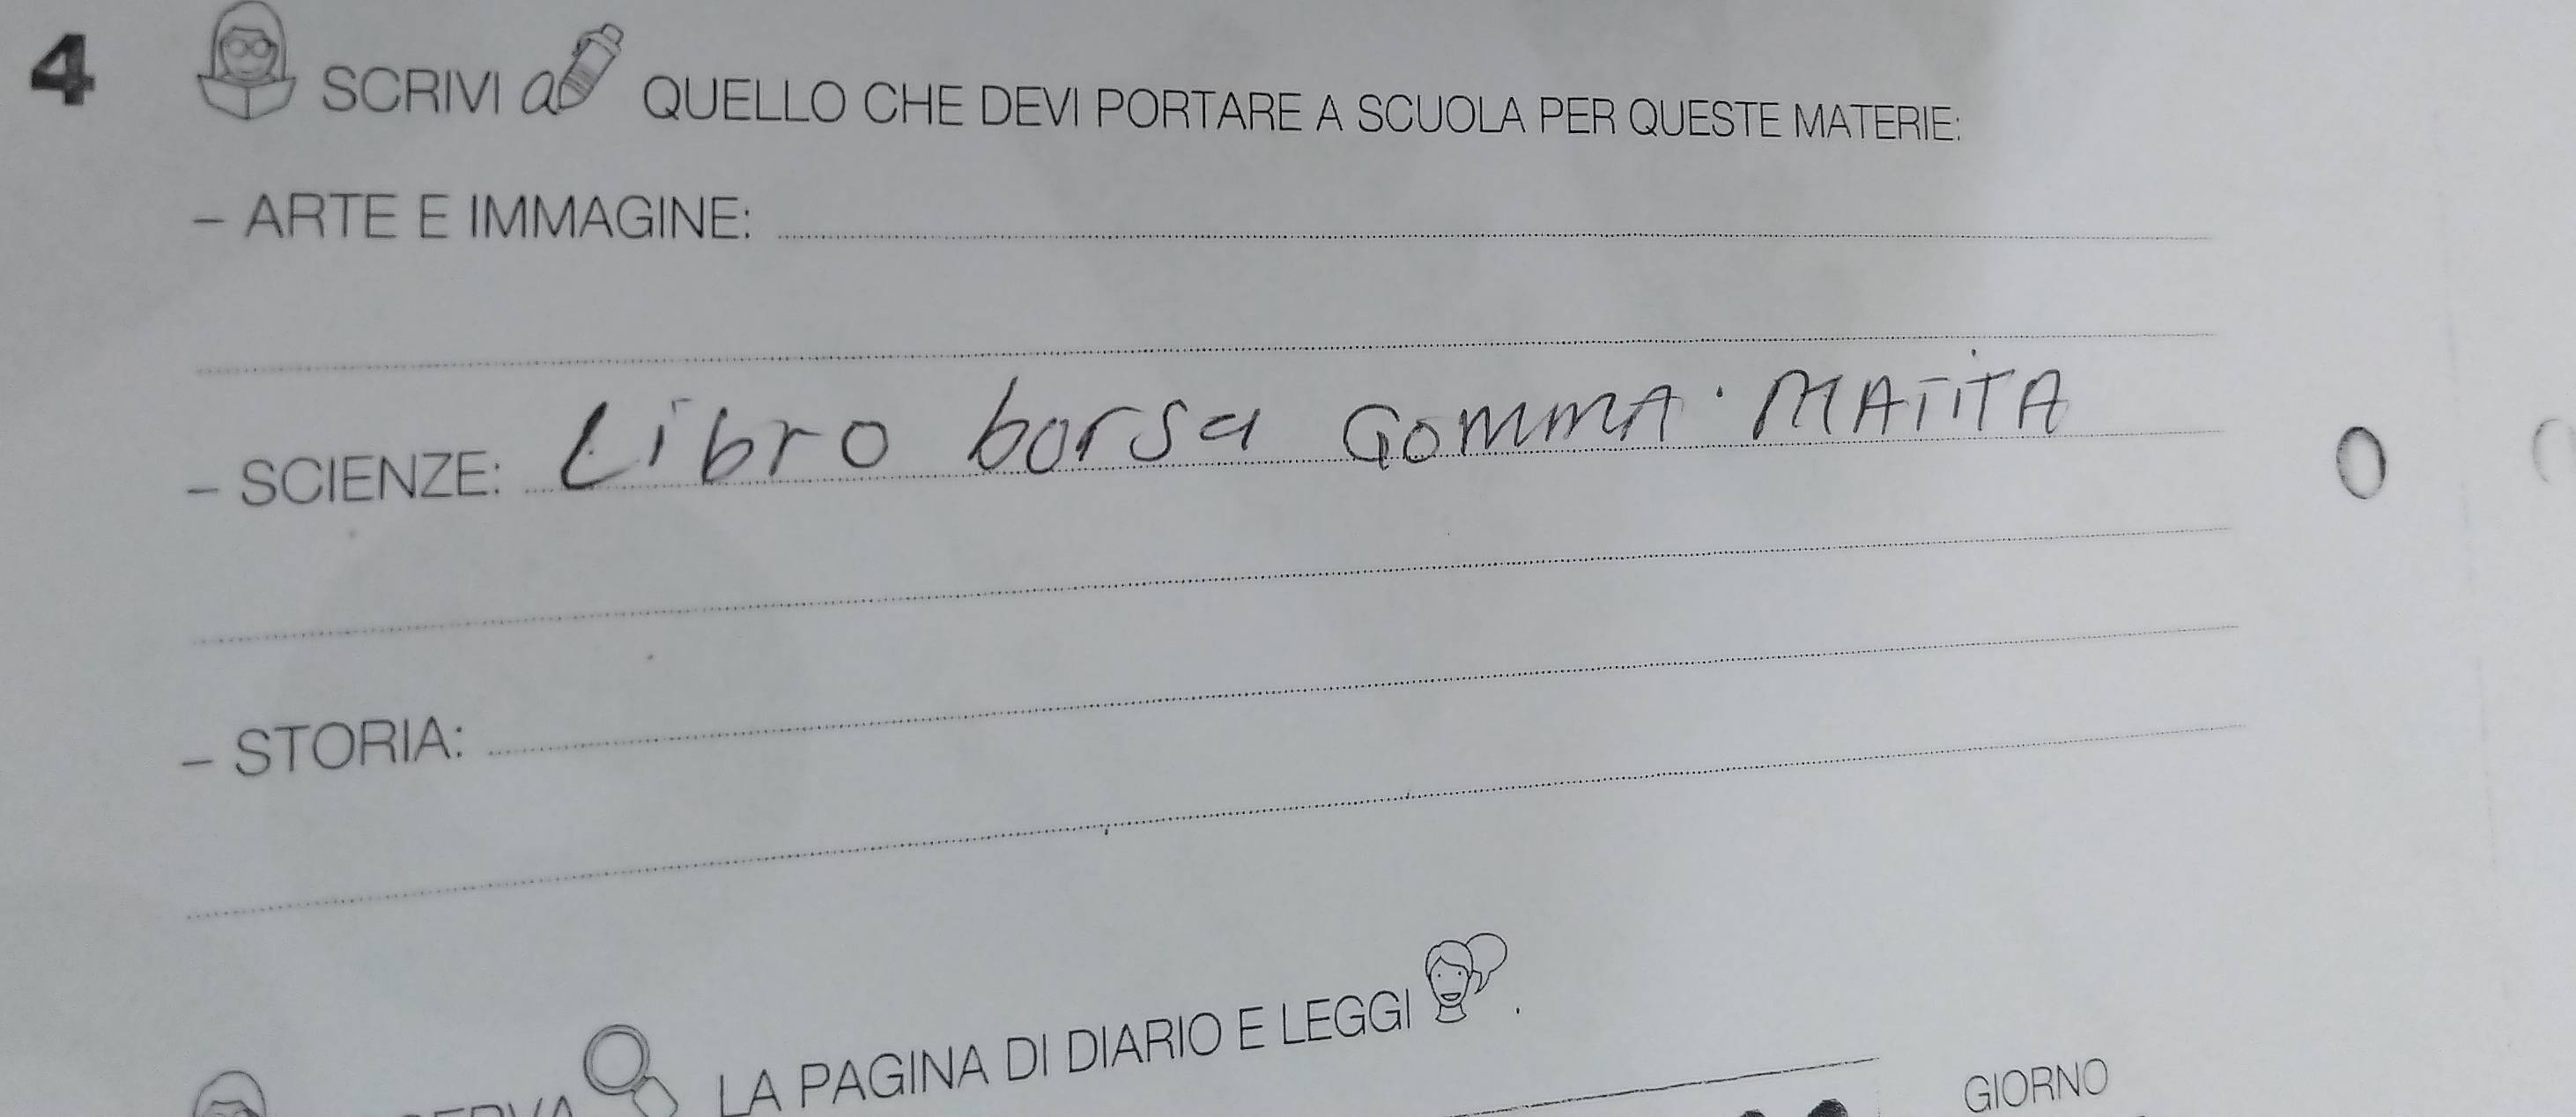 4 SCRIVI a QUELLO CHE DEVI PORTARE A SCUOLA PER QUESTE MATERIE:
– ARTE E IMMAGINE:
– SCIENZE: Libro borsa GOMMA · MATITA
– STORIA:
LA PAGINA DI DIARIO E LEGGI .
GIORNO